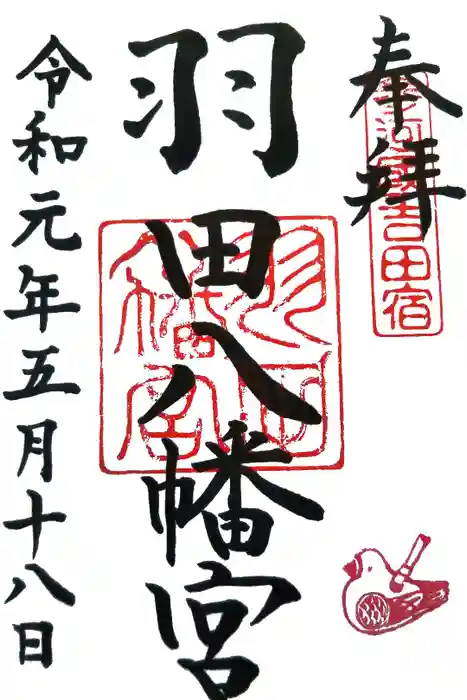 奉拝
吉田宿
羽田八幡宮
羽田
八幡宮
令和元年五月十八日